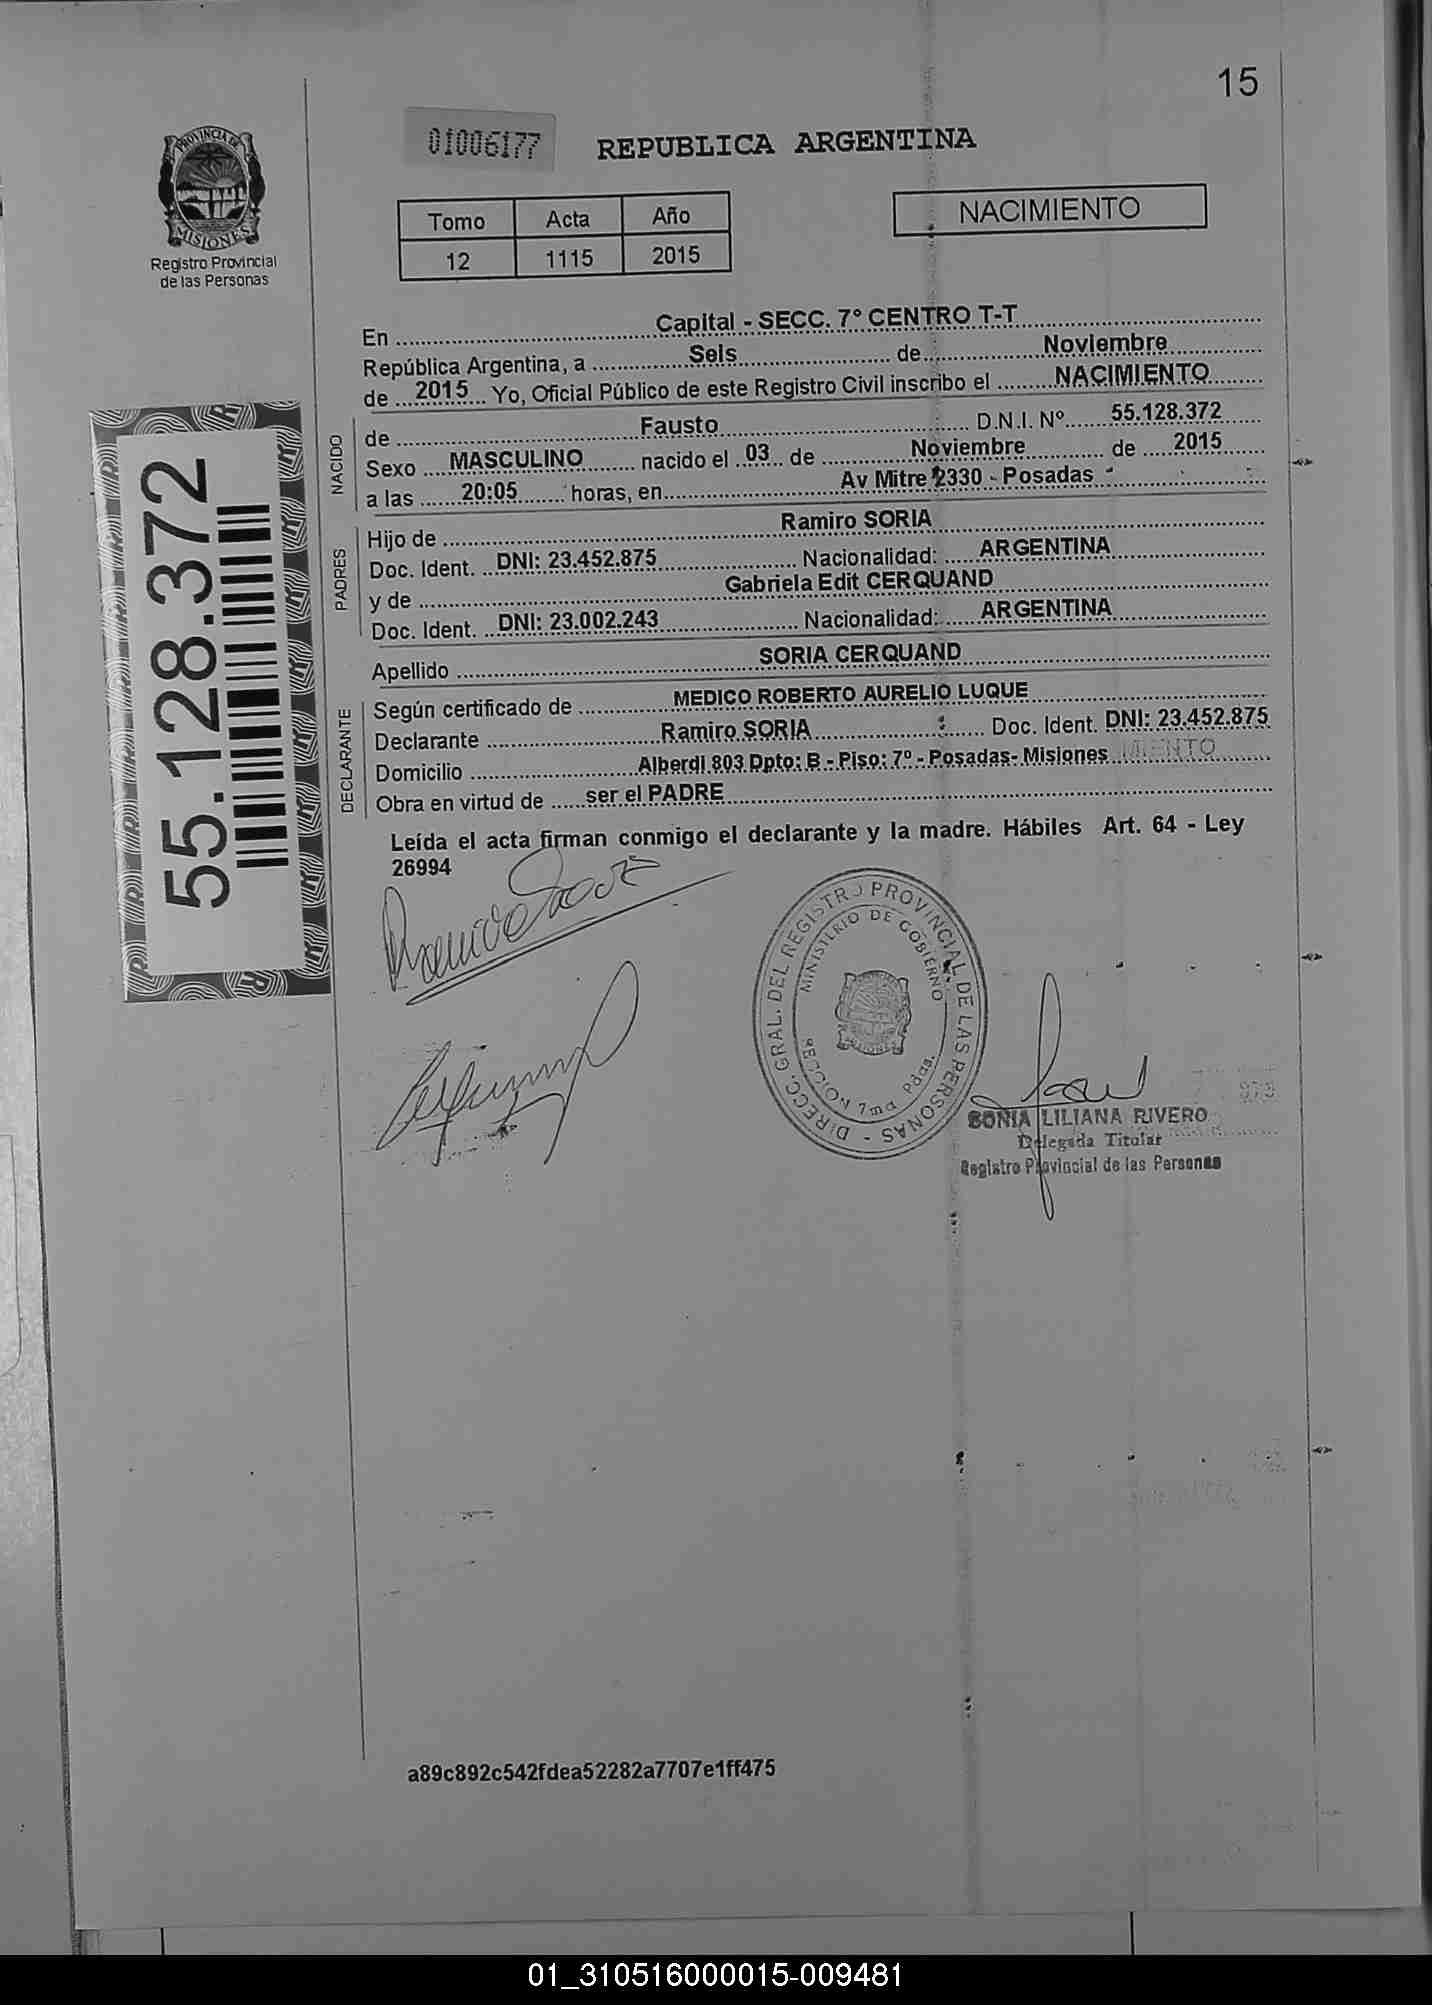 15
PROVINCIA DE
MISIONES
Registro Provincial
de las Personas
01006177
REPUBLICA ARGENTINA
Tomo Acta Año
12 1115 2015
NACIMIENTO
En Capital - SECC. 7° CENTRO T-T
República Argentina, a Seis de Noviembre
de 2015 Yo, Oficial Público de este Registro Civil inscribo el NACIMIENTO
NACIDO
de Fausto D.N.I. Nº 55.128.372
Sexo MASCULINO nacido el 03 de Noviembre de 2015
a las 20:05 horas, en Av Mitre 2330 - Posadas
PADRES
Hijo de Ramiro SORIA
Doc. Ident. DNI: 23.452.875 Nacionalidad: ARGENTINA
y de Gabriela Edit CERQUAND
Doc. Ident. DNI: 23.002.243 Nacionalidad: ARGENTINA
Apellido SORIA CERQUAND
DECLARANTE
Según certificado de MEDICO ROBERTO AURELIO LUQUE
Declarante Ramiro SORIA Doc. Ident. DNI: 23.452.875
Domicilio Alberdi 803 Dpto: B - Piso: 7º - Posadas- Misiones
Obra en virtud de ser el PADRE
Leída el acta firman conmigo el declarante y la madre. Hábiles Art. 64 - Ley
26994
55.128.372
DIRECC. GRAL. DEL REGISTRO PROVINCIAL DE LAS PERSONAS -
MINISTERIO DE GOBIERNO
SECCION 7ma Pdas.
SONIA LILIANA RIVERO
Delegada Titular
Registro Provincial de las Personas
a89c892c542fdea52282a7707e1ff475
01_310516000015-009481